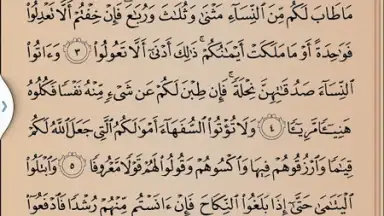 مَا طَابَ لَكُم مِّنَ ٱلنِّسَآءِ مَثْنَىٰ وَثُلَٰثَ وَرُبَٰعَ ۖ فَإِنْ خِفْتُمْ أَلَّا تَعْدِلُوا۟
فَوَٰحِدَةً أَوْ مَا مَلَكَتْ أَيْمَٰنُكُمْ ۚ ذَٰلِكَ أَدْنَىٰٓ أَلَّا تَعُولُوا۟ ٣ وَءَاتُوا۟
ٱلنِّسَآءَ صَدُقَٰتِهِنَّ نِحْلَةً ۚ فَإِن طِبْنَ لَكُمْ عَن شَىْءٍ مِّنْهُ نَفْسًا فَكُلُوهُ
هَنِيٓـًٔا مَّرِيٓـًٔا ٤ وَلَا تُؤْتُوا۟ ٱلسُّفَهَآءَ أَمْوَٰلَكُمُ ٱلَّتِى جَعَلَ ٱللَّهُ لَكُمْ
قِيَٰمًا وَٱرْزُقُوهُمْ فِيهَا وَٱكْسُوهُمْ وَقُولُوا۟ لَهُمْ قَوْلًا مَّعْرُوفًا ٥ وَٱبْتَلُوا۟
ٱلْيَتَٰمَىٰ حَتَّىٰٓ إِذَا بَلَغُوا۟ ٱلنِّكَاحَ فَإِنْ ءَانَسْتُم مِّنْهُمْ رُشْدًا فَٱدْفَعُوٓا۟